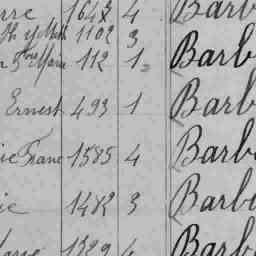 rre 1643 4 Barb
1102 3
Marie 112 1 Barb
Ernest 493 1 Barb
ie Franc 1585 4 Barb
ie 1482 3 Barb
1329 4 Barb